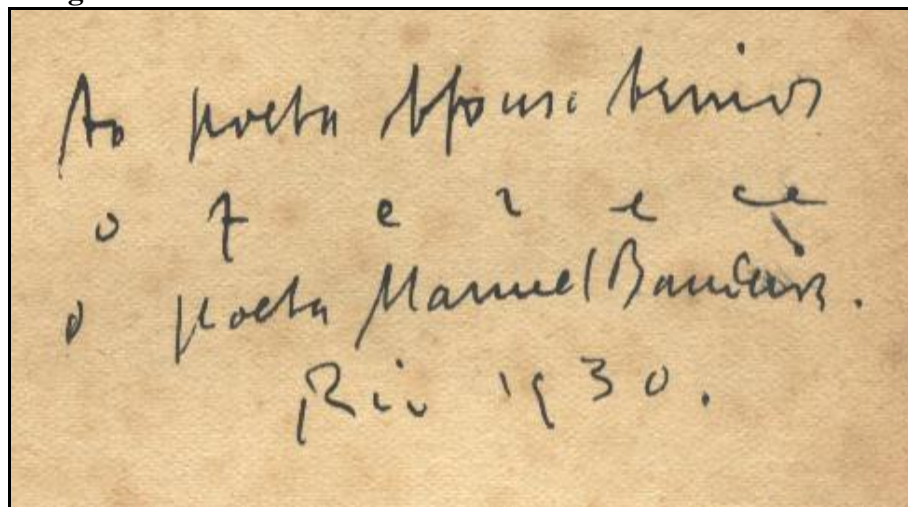 Ao poeta Afonso
o f e r e ce
o poeta Manuel Bandeira.
Rio 1930.